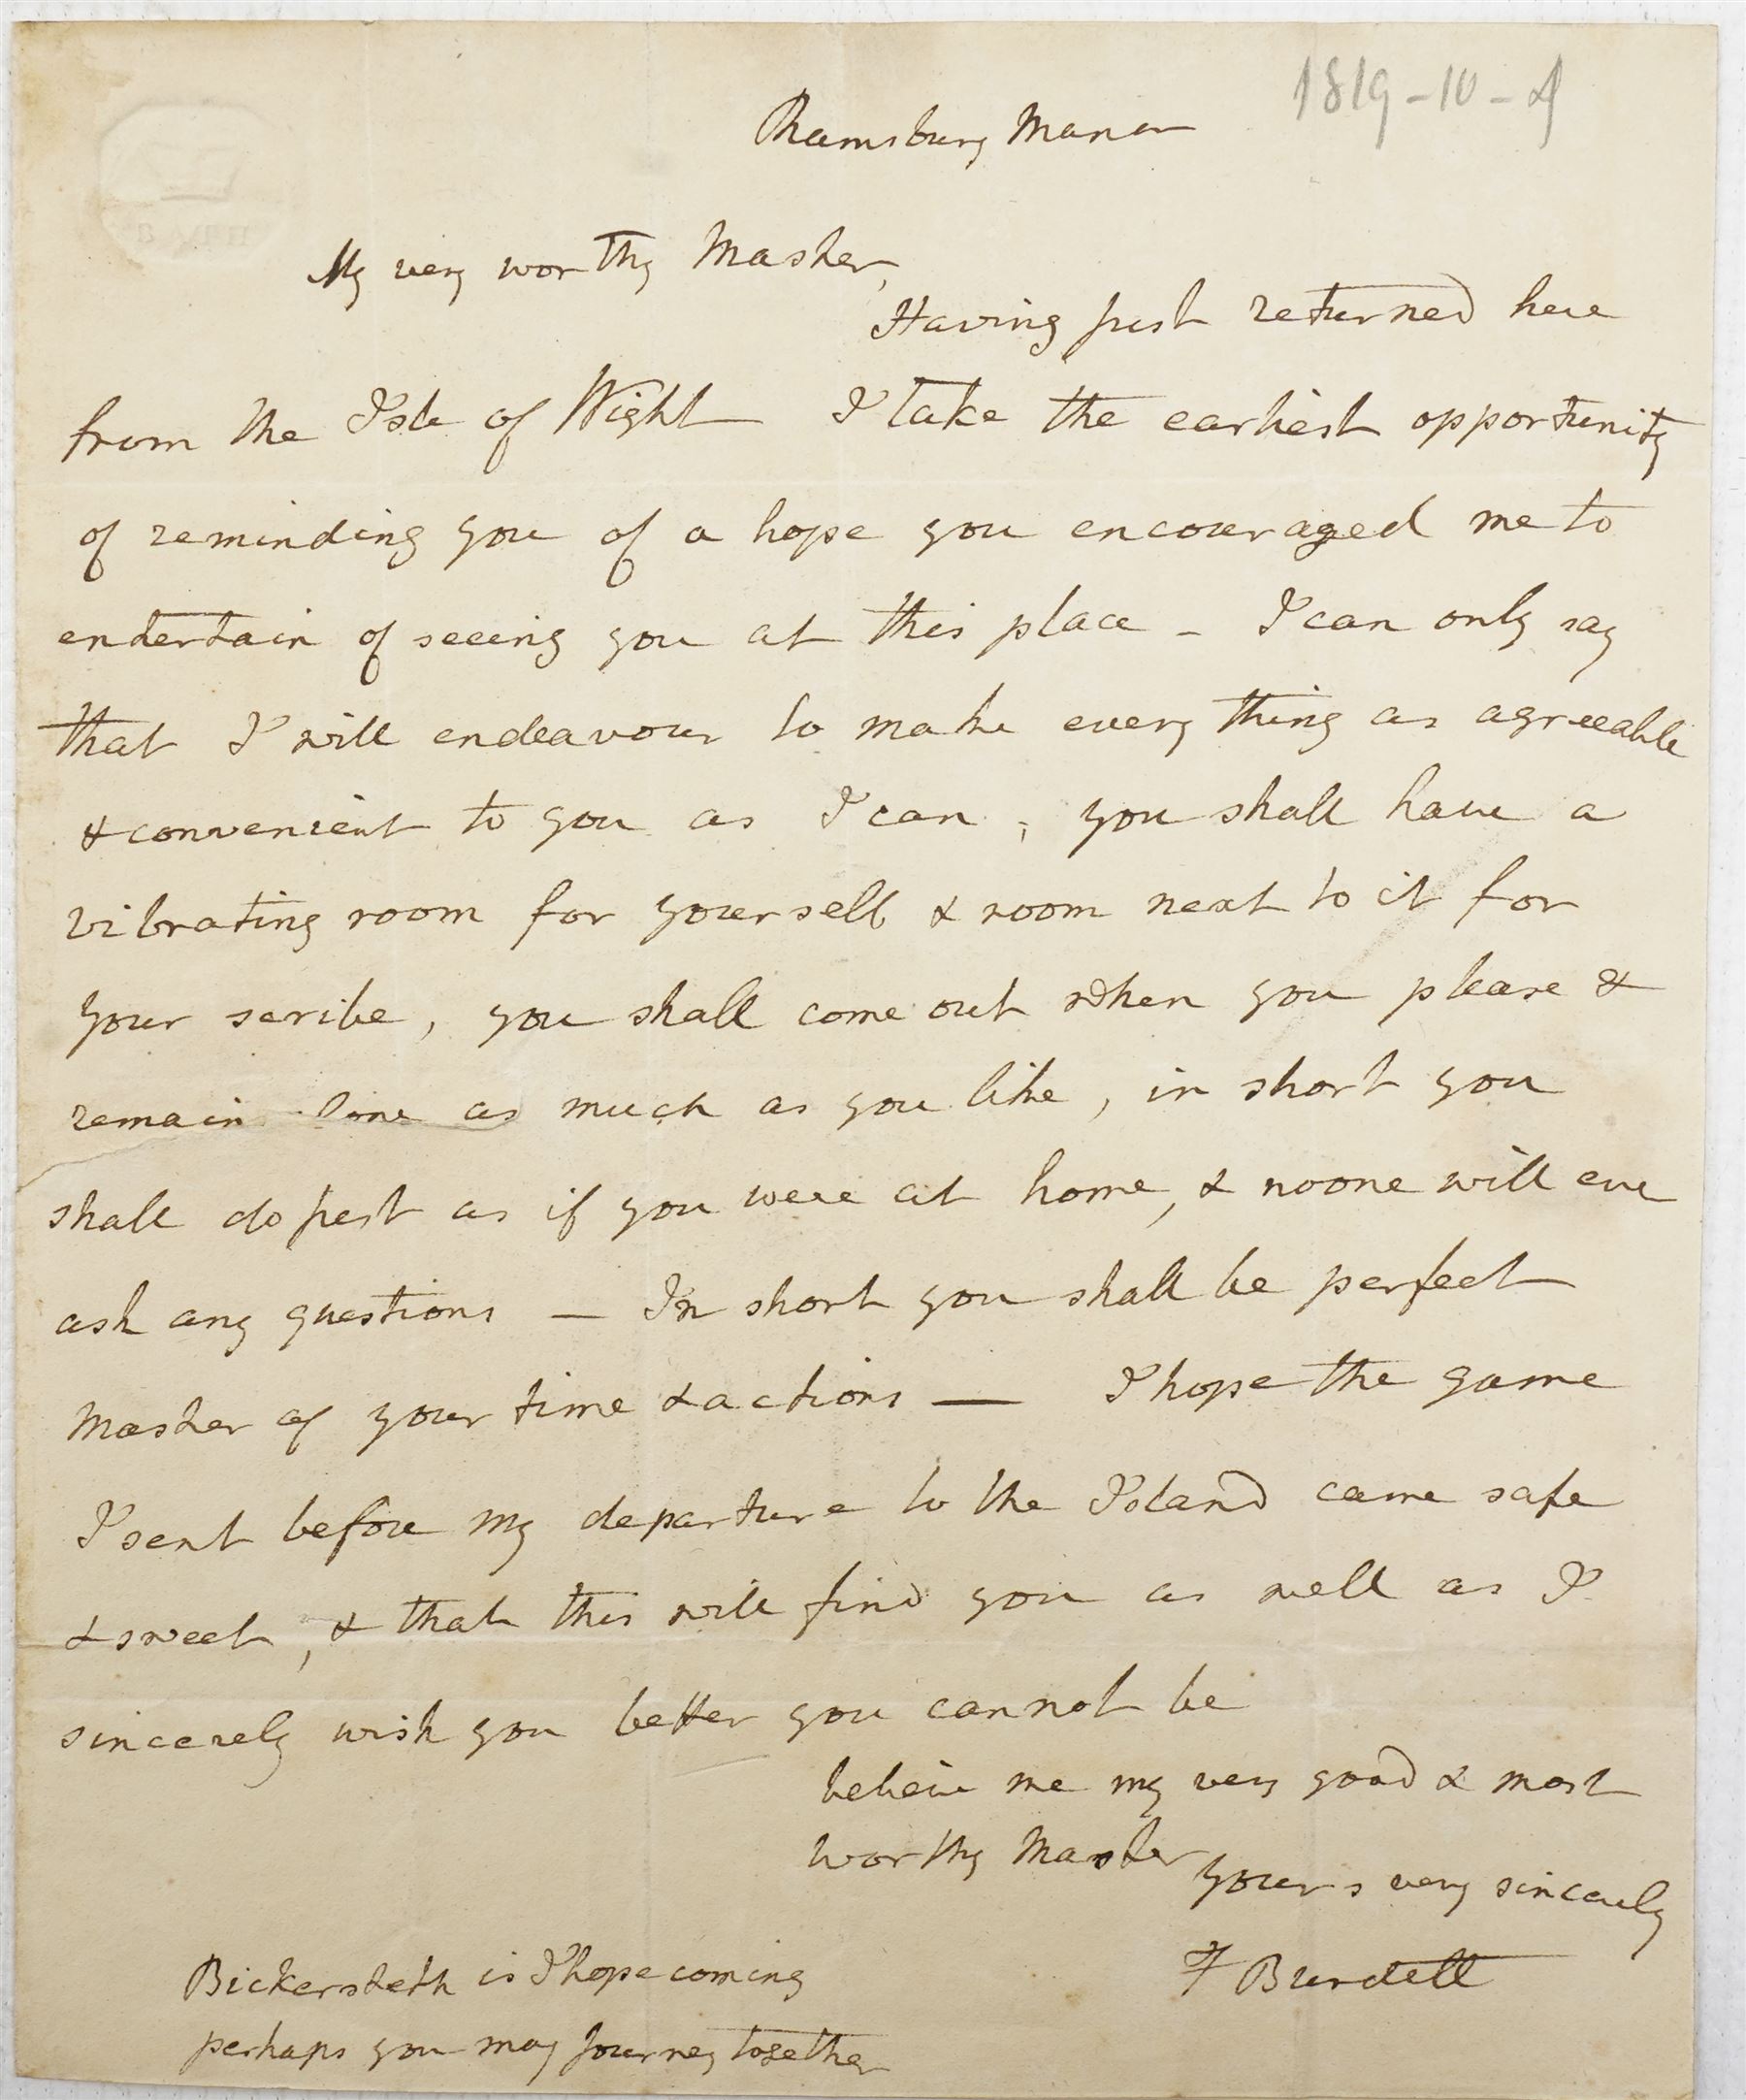 1819-10-4
Ramsbury Manor
My very worthy Master,
Having just returned here
from the Isle of Wight I take the earliest opportunity
of reminding you of a hope you encouraged me to
entertain of seeing you at this place - I can only say
that I will endeavour to make every thing as agreeable
& convenient to you as I can, you shall have a
vibrating room for yourself & room next to it for
your scribe, you shall come out when you please &
remain as much as you like, in short you
shall do just as if you were at home, & no one will eve
ask any questions — In short you shall be perfect
Master of your time & actions — I hope the game
I sent before my departure to the Island came safe
& sweet, & that this will find you as well as I
sincerely wish you better you cannot be
believe me my very good & most
worthy Master
yours very sincerely
F Burdett
Bickersteth is I hope coming
perhaps you may journey together